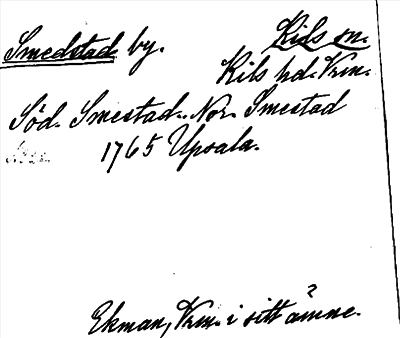 Smedstad by. Kils sn.
Kils hd. Vrm.
Söd. Smestad. Nor. Smestad
1765 Upsala.
Ekman, Vrm. i sitt ämne.